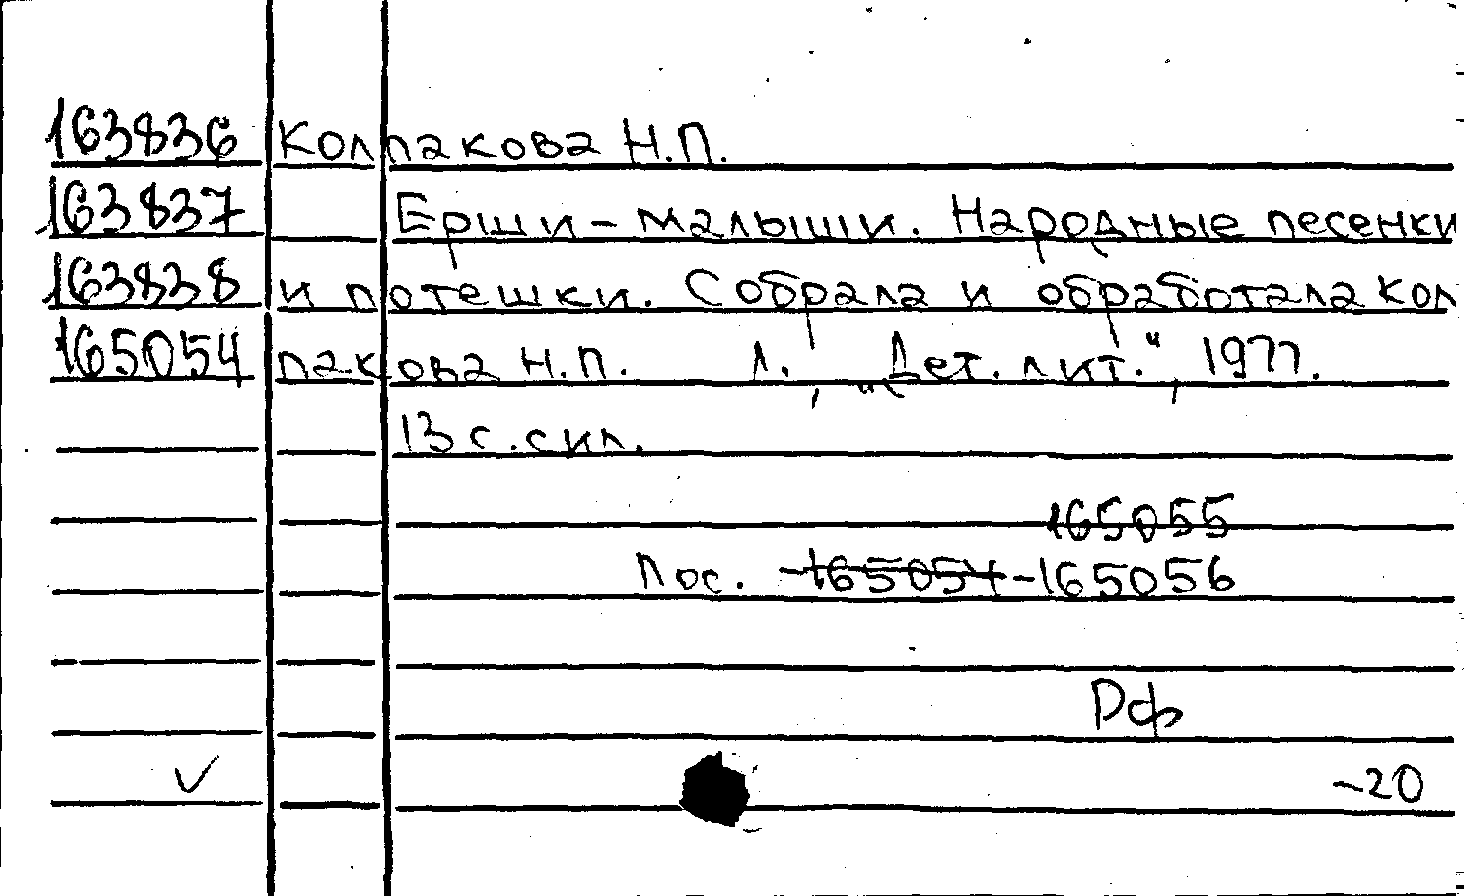 163836 Колпакова Н.П.
163837 Ерши-малыши. Народные песенки
163838 и потешки. Собрала и обработала Кол
165054 пакова Н.П. Л., „Дет. лит.“, 1977.
13 с. с ил.
165055
Пос. -165054-165056
Рф
-20